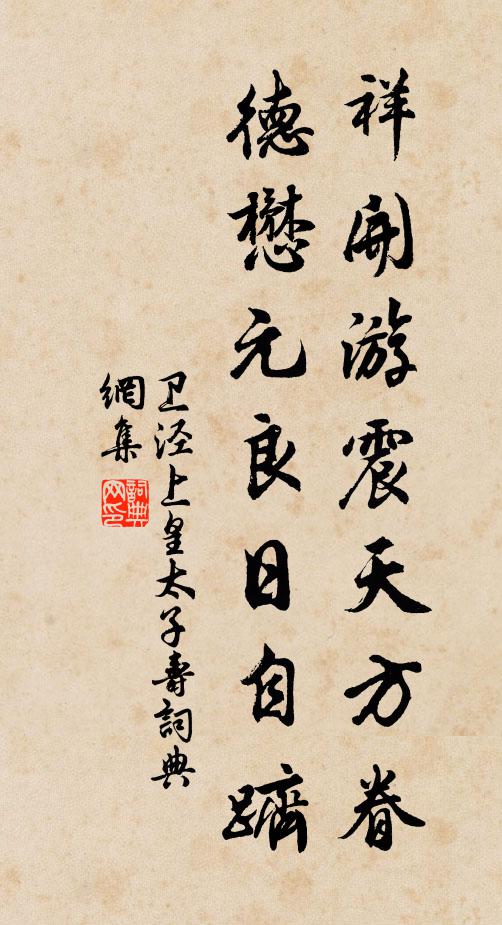 祥開游震天方眷
德懋元良日自躋
卫泾上皇太子壽詞典
網集
詞典網印